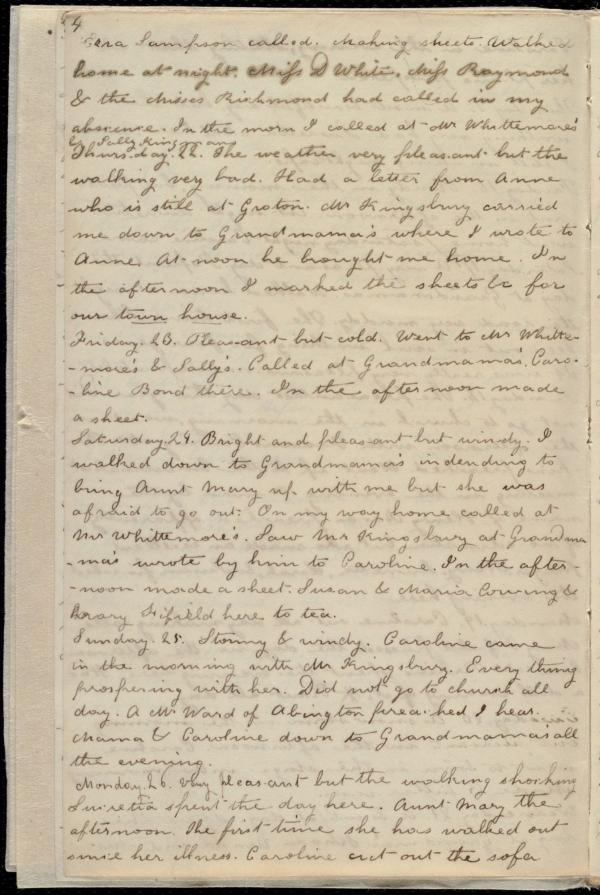 4
Ezra Sampson called. Making sheets. Walked
home at night. Miss D White, Miss Raymond
& the Misses Richmond had called in my
abscence. In the morn I called at Mr Whittemore's
& Sally Kingman
Thurs.day. 22. The weather very pleas.ant but the
walking very bad. Had a letter from Anne
who is still at Groton. Mr Kingsbury carried
me down to Grandmama's where I wrote to
Anne. At noon he brought me home. In
the afternoon I marked the sheets &c for
our town house.
Friday. 23. Pleas-ant but cold. Went to Mr Whitte-
-more's & Sally's. Called at Grandmama's. Caro-
-line Bond there. In the afternoon made
a sheet.
Saturday. 24. Bright and pleas-ant but windy. I
walked down to Grandmama's indending to
bring Aunt Mary up with me but she was
afraid to go out. On my way home called at
Mr Whittemore's. Saw Mr Kingsbury at Grandma
-ma's wrote by him to Caroline. In the after-
-noon made a sheet. Susan & Maria Cowing &
Fifield here to tea.
Sunday. 25. Stormy & windy. Caroline came
in the morning with Mr Kingsbury. Every thing
prospering with her. Did not go to church all
day. A Mr Ward of Abington prea.ched I hear.
Mama & Caroline down to Grandmama's all
the evening.
Monday. 26. Very pleas.ant but the walking shocking
Lucretia spent the day here. Aunt Mary the
afternoon. The first time she has walked out
since her illness. Caroline cut out the sofa